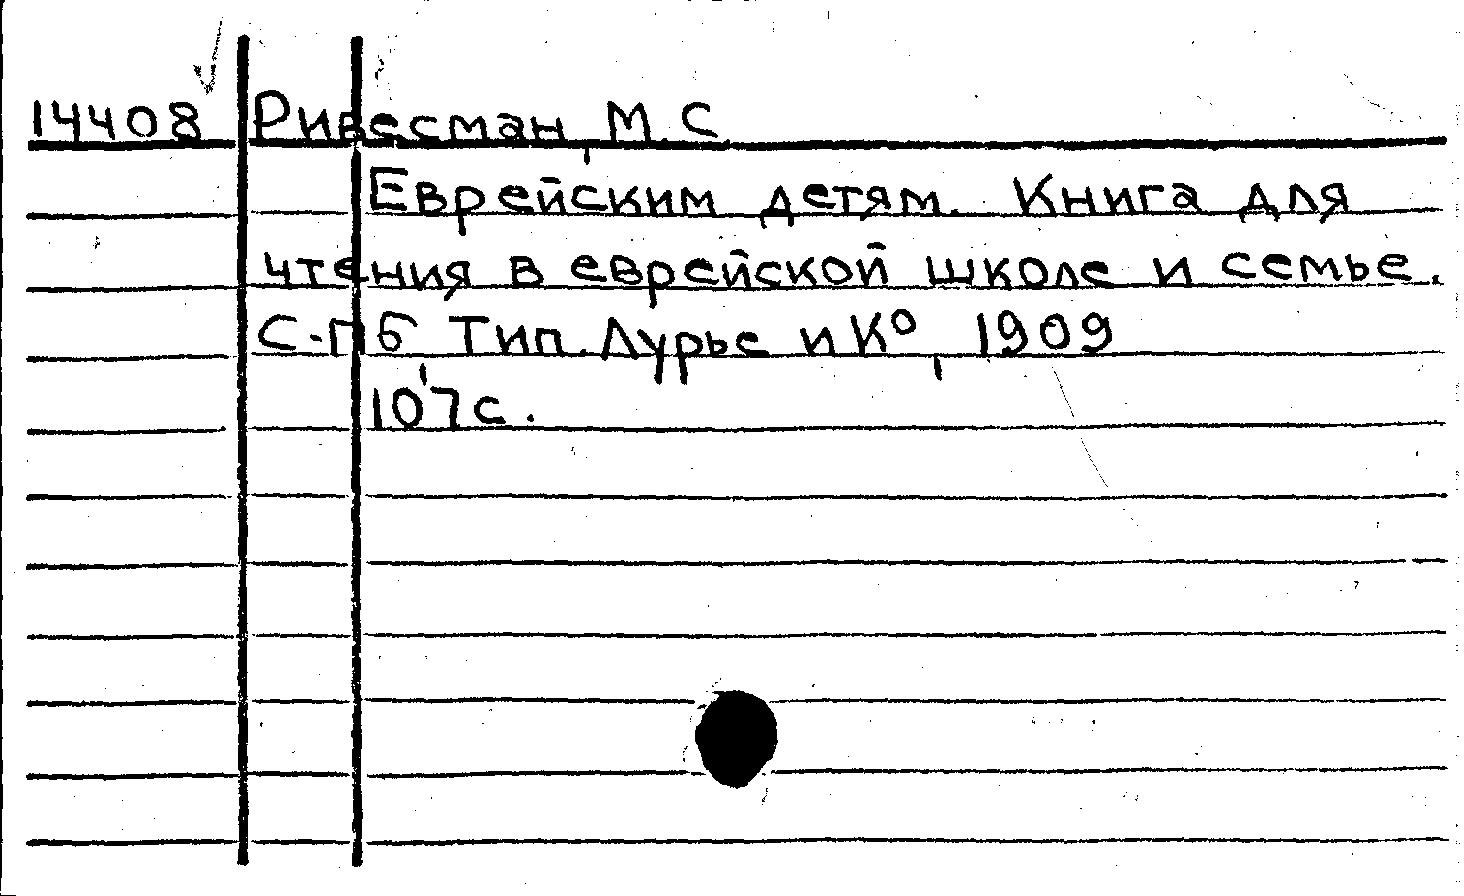 14408 Ривесман, М. С.
Еврейским детям. Книга для
чтения в еврейской школе и семье.
С-Пб, Тип. Лурье и К⁰, 1909
107 с.